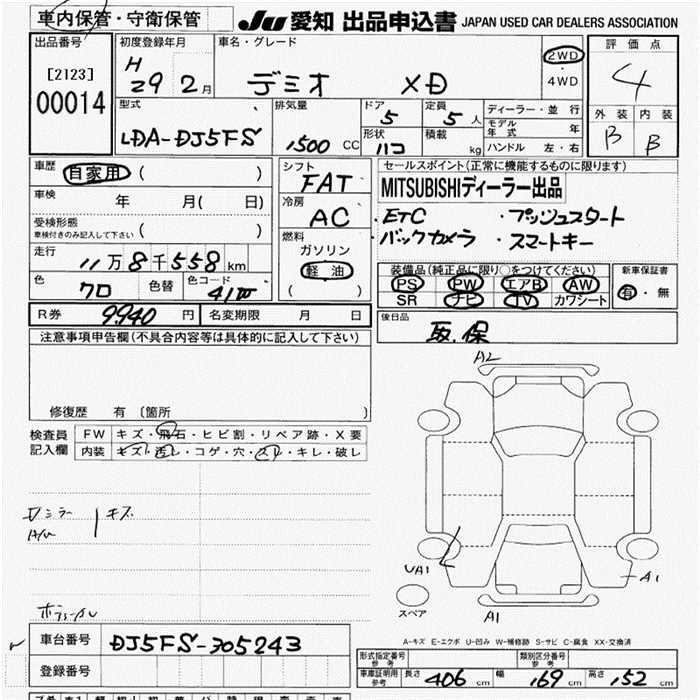 車内保管・守衛保管
JU 愛知 出品申込書 JAPAN USED CAR DEALERS ASSOCIATION
出品番号 初度登録年月 車名・グレード 評価点
[2123] H 29 2月 デミオ XD 2WD・4WD 4
00014
型式 排気量 ドア 定員 ディーラー・並行 外装 内装
LDA-DJ5FS 1500 CC 5 5人 モデル年式 年 B B
形状 ハコ 積載 kg ハンドル 左・右
車歴 自家用 ( )
シフト FAT
セールスポイント(正常に機能するものに限ります)
車検 年 月( 日)
冷房 AC
MITSUBISHIディーラー出品
受検形態 ( )
車検付きのみ記入して下さい
・ETC ・プッシュスタート
・バックカメラ ・スマートキー
走行 11万8千558km
燃料 ガソリン 軽油 ( )
装備品(純正品に限り○をつけてください) 新車保証書
色 クロ 色替 色コード 41W
PS PW エアB AW 有・無
SR ナビ TV カワシート
R券 9940円 名変期限 月 日
後日品 取.保
注意事項申告欄(不具合内容等は具体的に記入して下さい)
修復歴 有 〔箇所 〕
A2
検査員記入欄 FW キズ・飛石・ヒビ割・リペア跡・X要
内装 キズ・汚レ・コゲ・穴・スレ・キレ・破レ
ミラー キズ
UA1 A1
スペア
A1
A-キズ E-エクボ U-凹ミ W-補修跡 S-サビ C-腐食 XX-交換済
車台番号 DJ5FS-305243
形式指定番号 参考 類別区分番号 参考
登録番号
車庫証明用 参考 長さ 406cm 幅 169cm 高さ 152cm